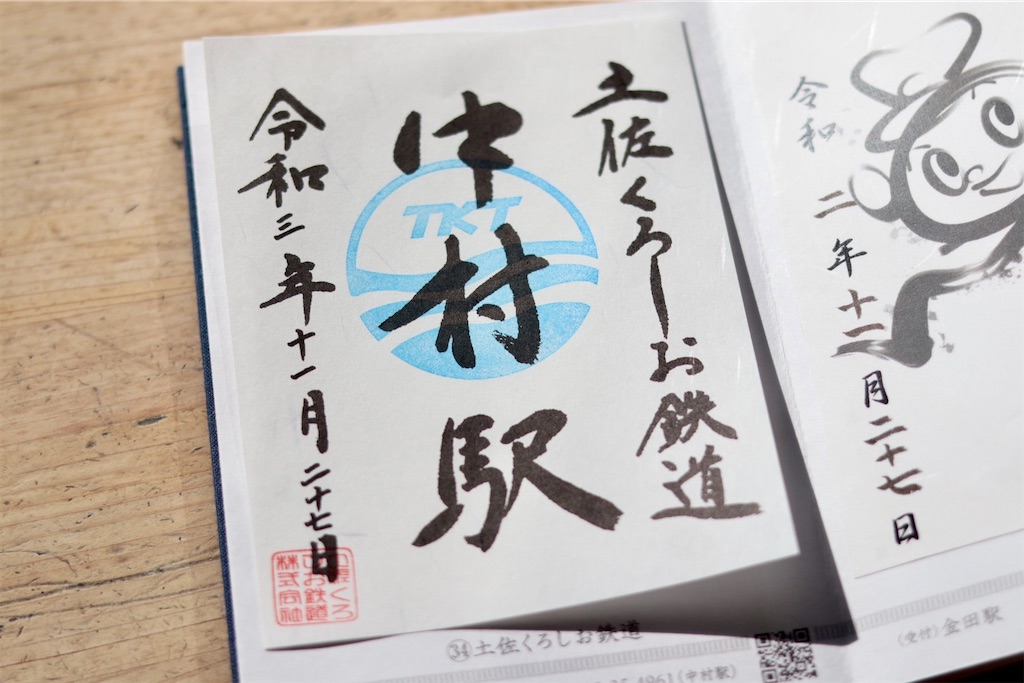 土佐くろしお鉄道
中村駅
TKT
令和三年十一月二十七日
株式会社
㉞土佐くろしお鉄道
4961(中村駅)
令和二年十一月二十七日
(受付)金田駅